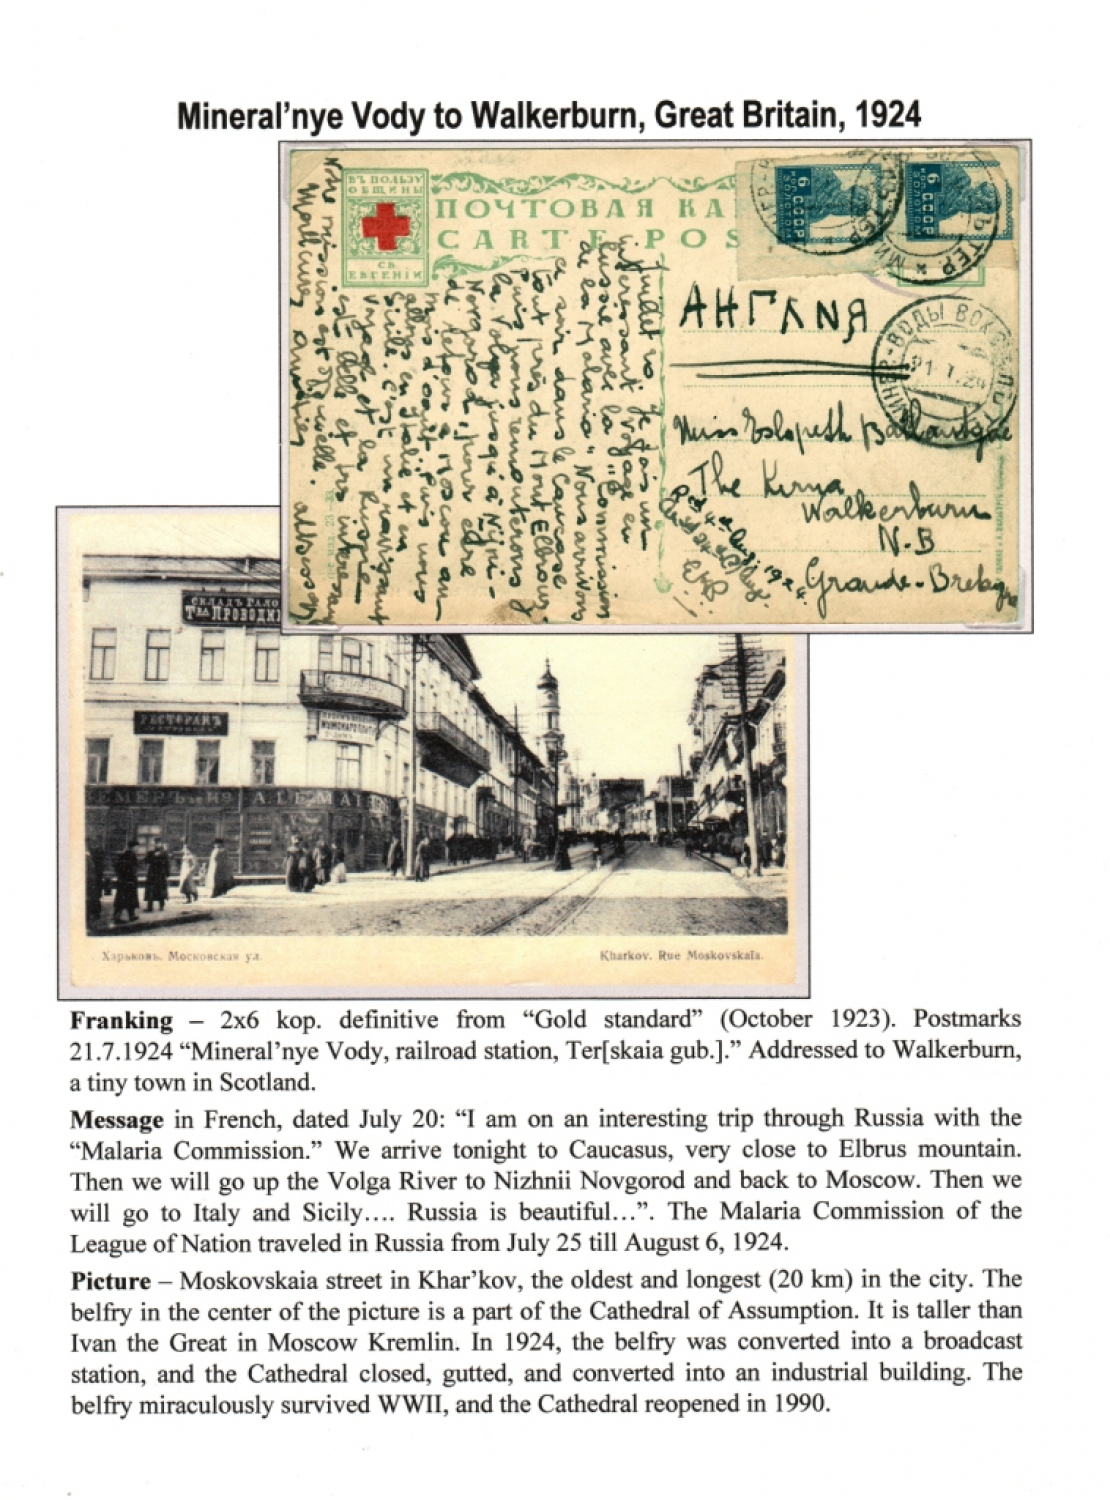 Mineral’nye Vody to Walkerburn, Great Britain, 1924
ВЪ ПОЛЬЗУ
ОБЩИНЫ
СВ.
ЕВГЕНІИ
ПОЧТОВАЯ КА
CARTE POS
6 КОП. СССР ЗОЛОТОМ
6 КОП. СССР ЗОЛОТОМ
АНГЛИЯ
МИНЕР-ВОДЫ ВОКЗ
21.7.24
Miss Elspeth Ballantyne
The Kirna
Walkerburn
N.B
Grande-Bretagne
Juillet 20 Je fais un
intéressant voyage en
Russie avec la "Commission
de la Malaria" Nous arrivons
ce soir dans le Caucase
tout près du Mont Elbrouz
Puis nous remonterons
la Volga jusqu'à Nijni-
Novgorod, pour être
de retour à Moscou au
mois d'août. Puis nous
allons en Italie et en
Sicile. C'est un ravissant
voyage et la Russie
est belle et très
СКЛАДЪ
ПРОВОДНИ
РЕСТОРАНЪ
Харьковъ. Московская ул.
Kharkov. Rue Moskovskaïa.
Franking – 2x6 kop. definitive from “Gold standard” (October 1923). Postmarks
21.7.1924 “Mineral’nye Vody, railroad station, Ter[skaia gub.].” Addressed to Walkerburn,
a tiny town in Scotland.
Message in French, dated July 20: “I am on an interesting trip through Russia with the
“Malaria Commission.” We arrive tonight to Caucasus, very close to Elbrus mountain.
Then we will go up the Volga River to Nizhnii Novgorod and back to Moscow. Then we
will go to Italy and Sicily…. Russia is beautiful…”. The Malaria Commission of the
League of Nation traveled in Russia from July 25 till August 6, 1924.
Picture – Moskovskaia street in Khar’kov, the oldest and longest (20 km) in the city. The
belfry in the center of the picture is a part of the Cathedral of Assumption. It is taller than
Ivan the Great in Moscow Kremlin. In 1924, the belfry was converted into a broadcast
station, and the Cathedral closed, gutted, and converted into an industrial building. The
belfry miraculously survived WWII, and the Cathedral reopened in 1990.